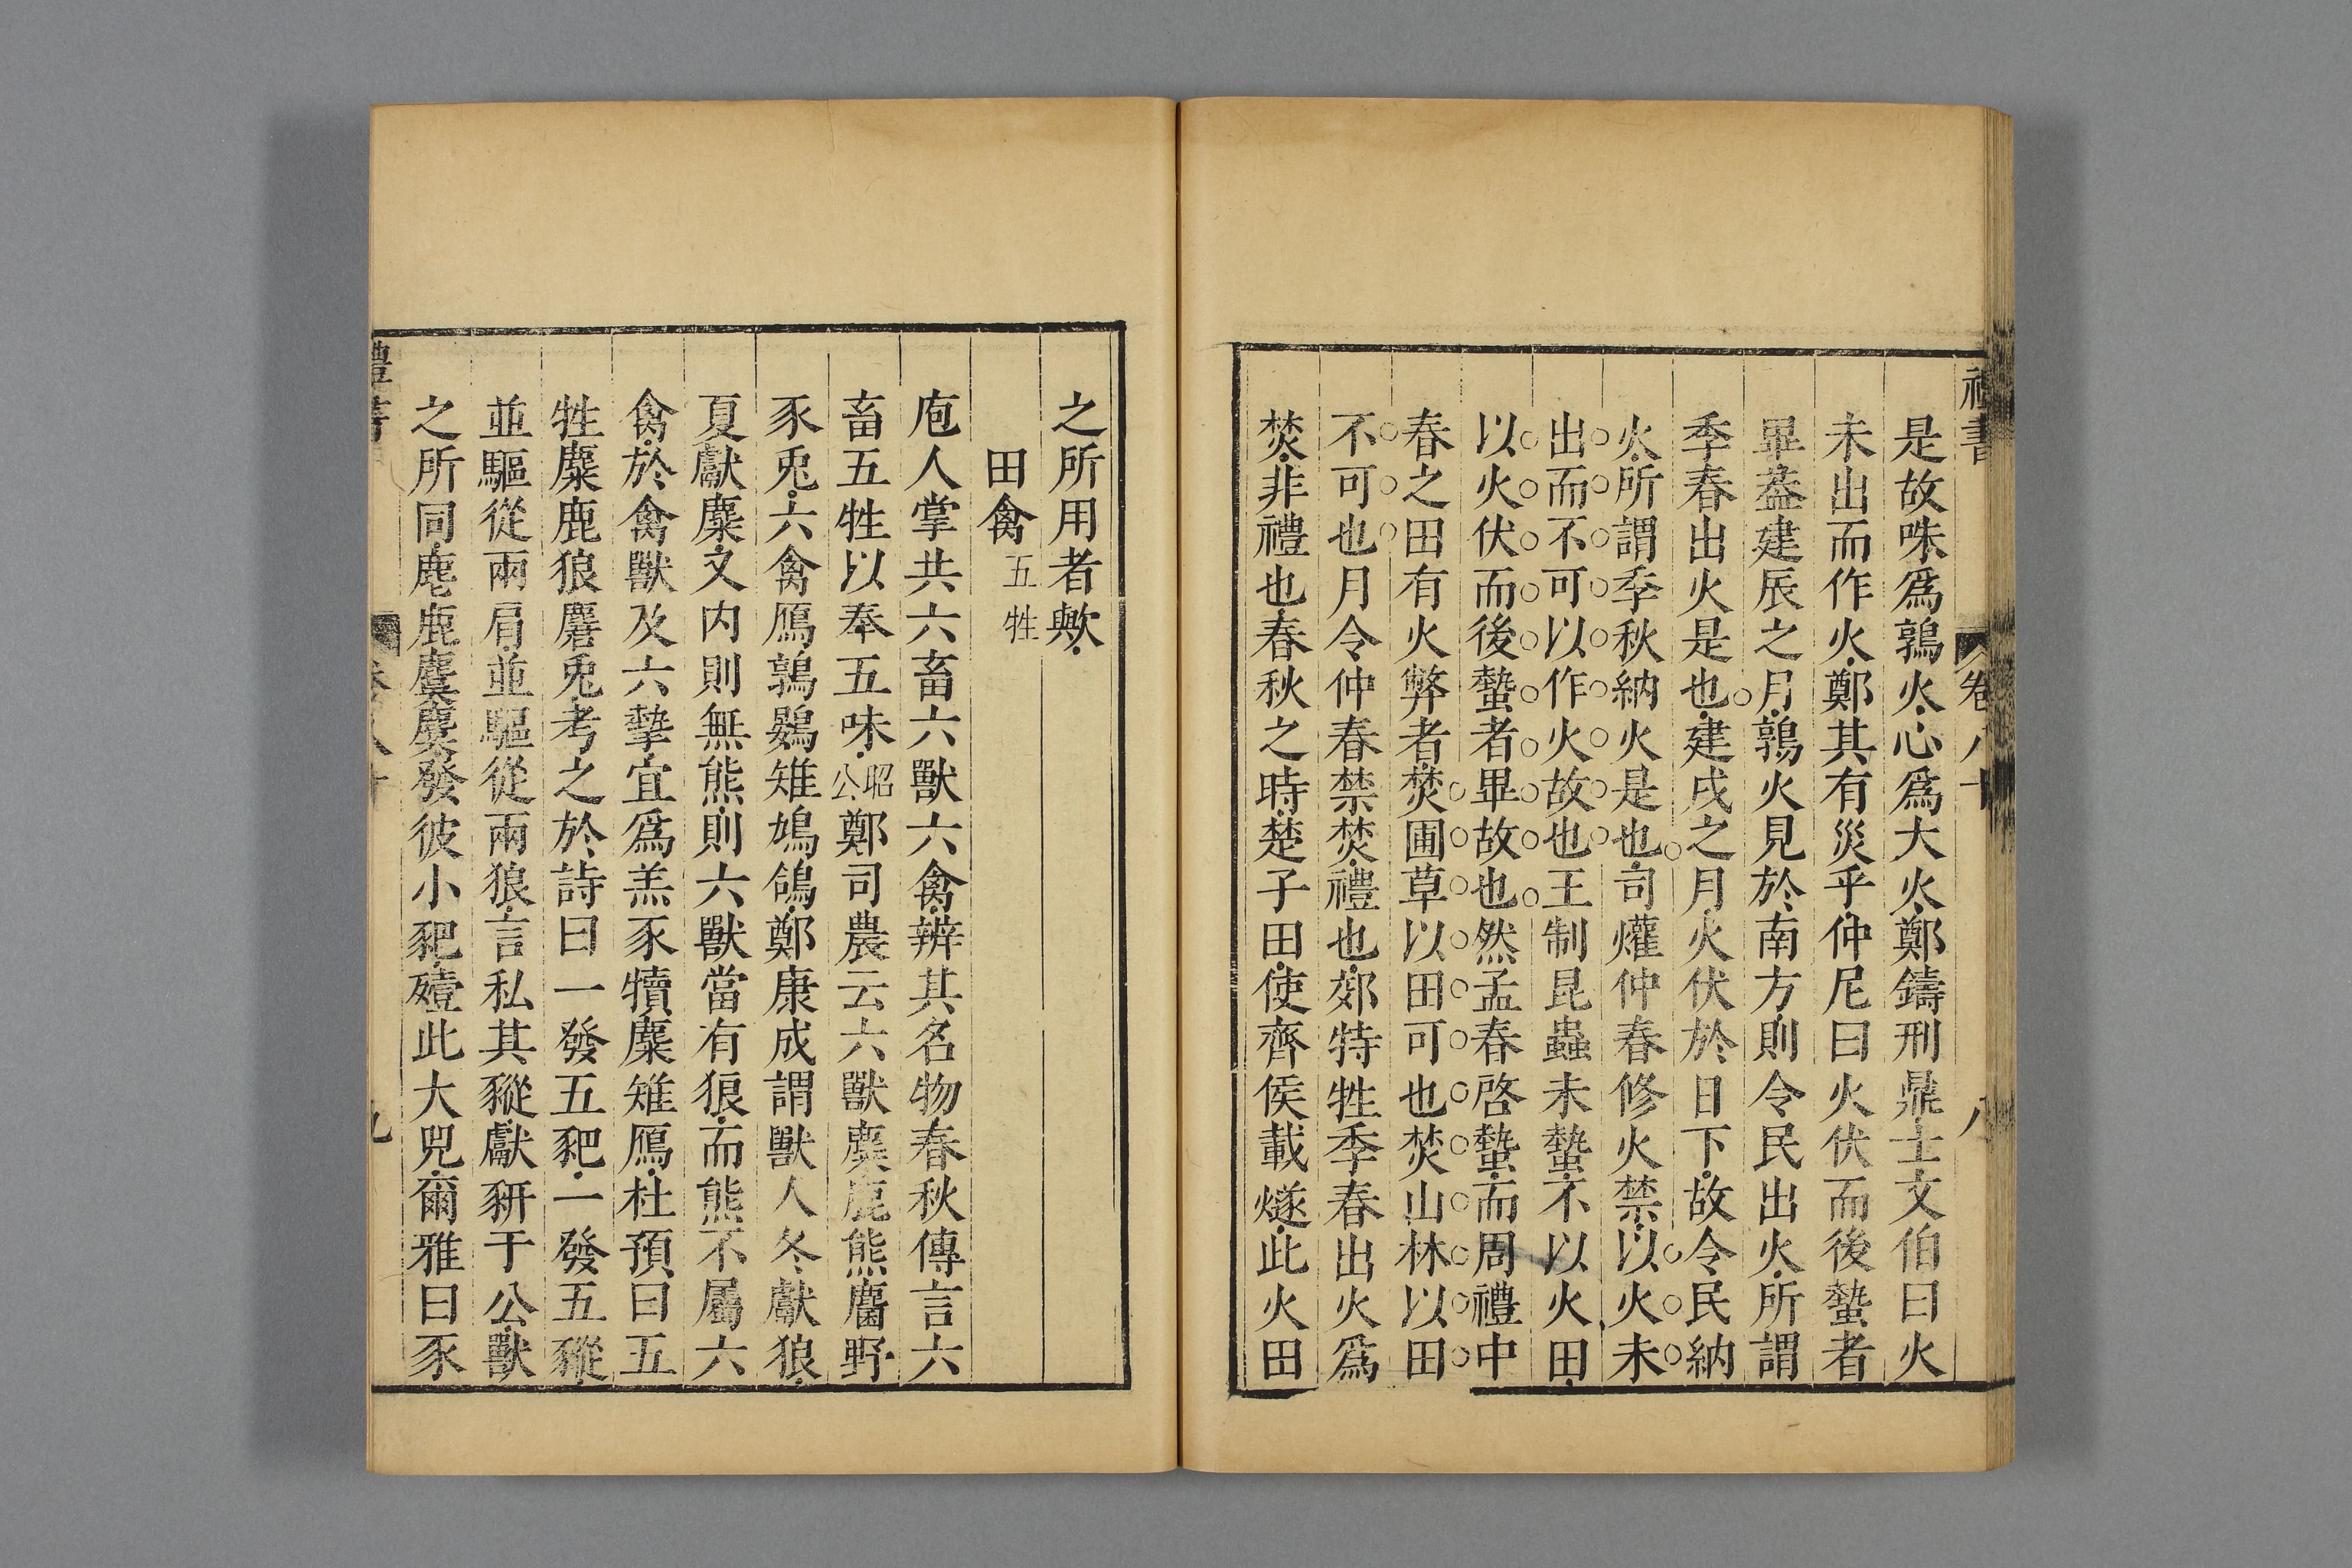 是故咮爲鶉火心爲大火鄭鑄刑鼎士文伯曰火
未出而作火鄭其有災乎仲尼曰火伏而後蟄者
畢葢建辰之月鶉火見於南方則令民出火所謂
季春出火是也建戌之月火伏於日下故令民納
火所謂季秋納火是也司爟仲春修火禁以火未
出而不可以作火故也王制昆蟲未蟄不以火田
以火伏而後蟄者畢故也然孟春啓蟄而周禮中
春之田有火弊者焚圃草以田可也焚山林以田
不可也月令仲春禁焚禮也郊特牲季春出火爲
焚非禮也春秋之時楚子田使齊侯載燧此火田
之所用者歟
田禽五牲
庖人掌共六畜六獸六禽辨其名物春秋傳言六
畜五牲以奉五味昭公鄭司農云六獸麋鹿熊麕野
豕兎六禽鴈鶉鷃雉鳩鴿鄭康成謂獸人冬獻狼
夏獻麋文内則無熊則六獸當有狼而熊不屬六
禽於禽獸及六摯宜爲羔豕犢麋雉鴈杜預曰五
牲麋鹿狼麏兎考之於詩曰一發五豝一發五豵
並驅從兩肩並驅從兩狼言私其豵獻豜于公獸
之所同麀鹿麌麌發彼小豝殪此大兕爾雅曰豕
禮書
卷八十